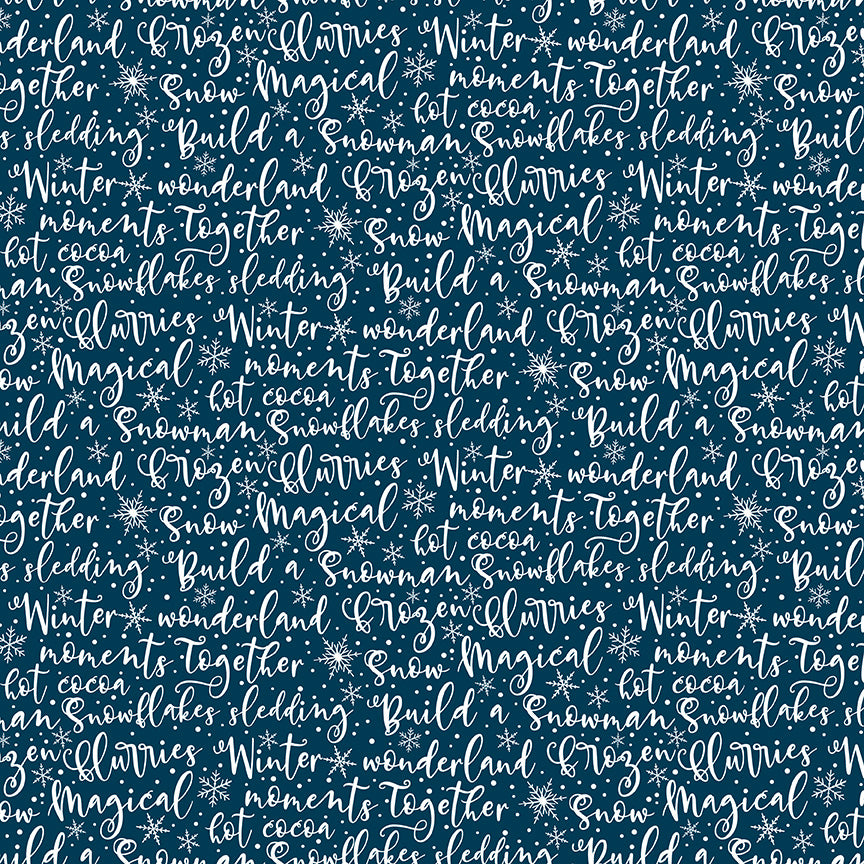 wonderland Frozen flurries Winter wonderland Frozen
Together Snow Magical moments Together Snow
hot cocoa
sledding Build a Snowman Snowflakes sledding Build
Winter wonderland Frozen flurries Winter
moments Together Snow Magical moments Together
hot cocoa hot cocoa
Snowflakes sledding Build a Snowman Snowflakes
flurries Winter wonderland Frozen flurries
Magical moments Together Snow Magical
hot cocoa hot
Build a Snowman Snowflakes sledding Build a Snowman
wonderland Frozen flurries Winter wonderland Frozen
Together Snow Magical moments Together Snow
hot cocoa
sledding Build a Snowman Snowflakes sledding Build
Winter wonderland Frozen flurries Winter
moments Together Snow Magical moments Together
hot cocoa hot cocoa
Snowflakes sledding Build a Snowman Snowflakes
flurries Winter wonderland Frozen flurries
Magical moments Together Snow Magical
hot cocoa hot
Build a Snowman Snowflakes sledding Build a Snowman